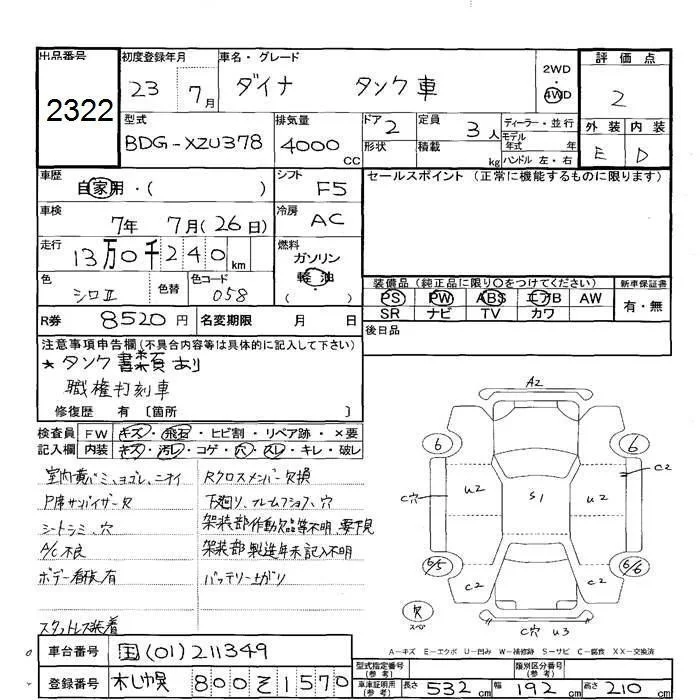 出品番号 初度登録年月 車名・グレード 評価点
2322 23 7月 ダイナ タンク車 2WD 4WD 2
型式 排気量 ドア 2 定員 3人 ディーラー・並行 外装 内装
BDG-XZU378 4000cc 形状 積載 kg モデル年式 年 E D
ハンドル 左・右
車歴 自家用・( ) シフト F5 セールスポイント (正常に機能するものに限ります)
車検 7年 7月(26日) 冷房 AC
走行 13万0千240km 燃料 ガソリン 軽油 ( )
色 シロⅡ 色替 色コード 058
装備品 (純正品に限り〇をつけてください) 新車保証書
PS PW ABS エアB AW 有・無
SR ナビ TV カワ
R券 8520円 名変期限 月 日 後日品
注意事項申告欄(不具合内容等は具体的に記入して下さい)
*タンク書類有り
職権打刻車
修復歴 有 〔箇所 〕
検査員 FW キズ・飛石・ヒビ割・リペア跡・×要
記入欄 内装 キズ・汚レ・コゲ・穴・スレ・キレ・破レ
室内黄バミ、ヨゴレ、ニオイ Rクロスメンバー欠損
P席サンバイザー欠 下廻り、フレームフショク、穴
シートシミ、穴 架装部作動欠品等不明 要下見
A/C不良 架装部製造年未記入不明
ボデー看板有 バッテリー上がり
スタットレス装着
A2
6 6
C2
C穴 U2 S1 U2
6/5 6/6
C2 C2
欠
スペア
C穴 U3
A-キズ E-エクボ U-凹み W-補修跡 S-サビ C-腐食 XX-交換済
車台番号 国(01)211349
登録番号 札幌 800 そ 1570
型式指定番号(参考) 類別区分番号(参考)
車庫証明用(参考) 長さ 532cm 幅 192cm 高さ 210cm